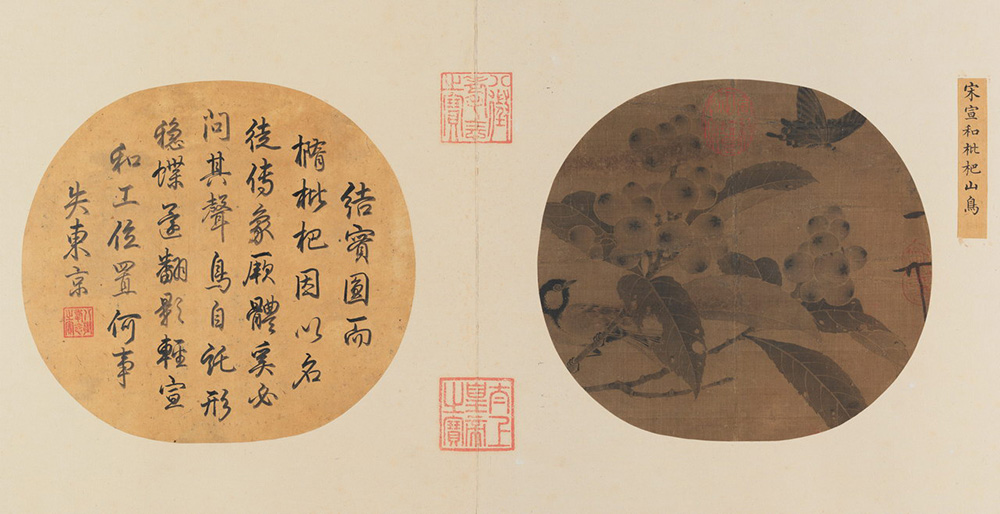 宋宣和枇杷山鳥
八徵耄念之寶
太上皇帝之寶
結實圓而
橢枇杷因以名
徒傳象厥體奚必
問其聲鳥自託形
穩蝶還翻影輕宣
和工位置何事
失東京